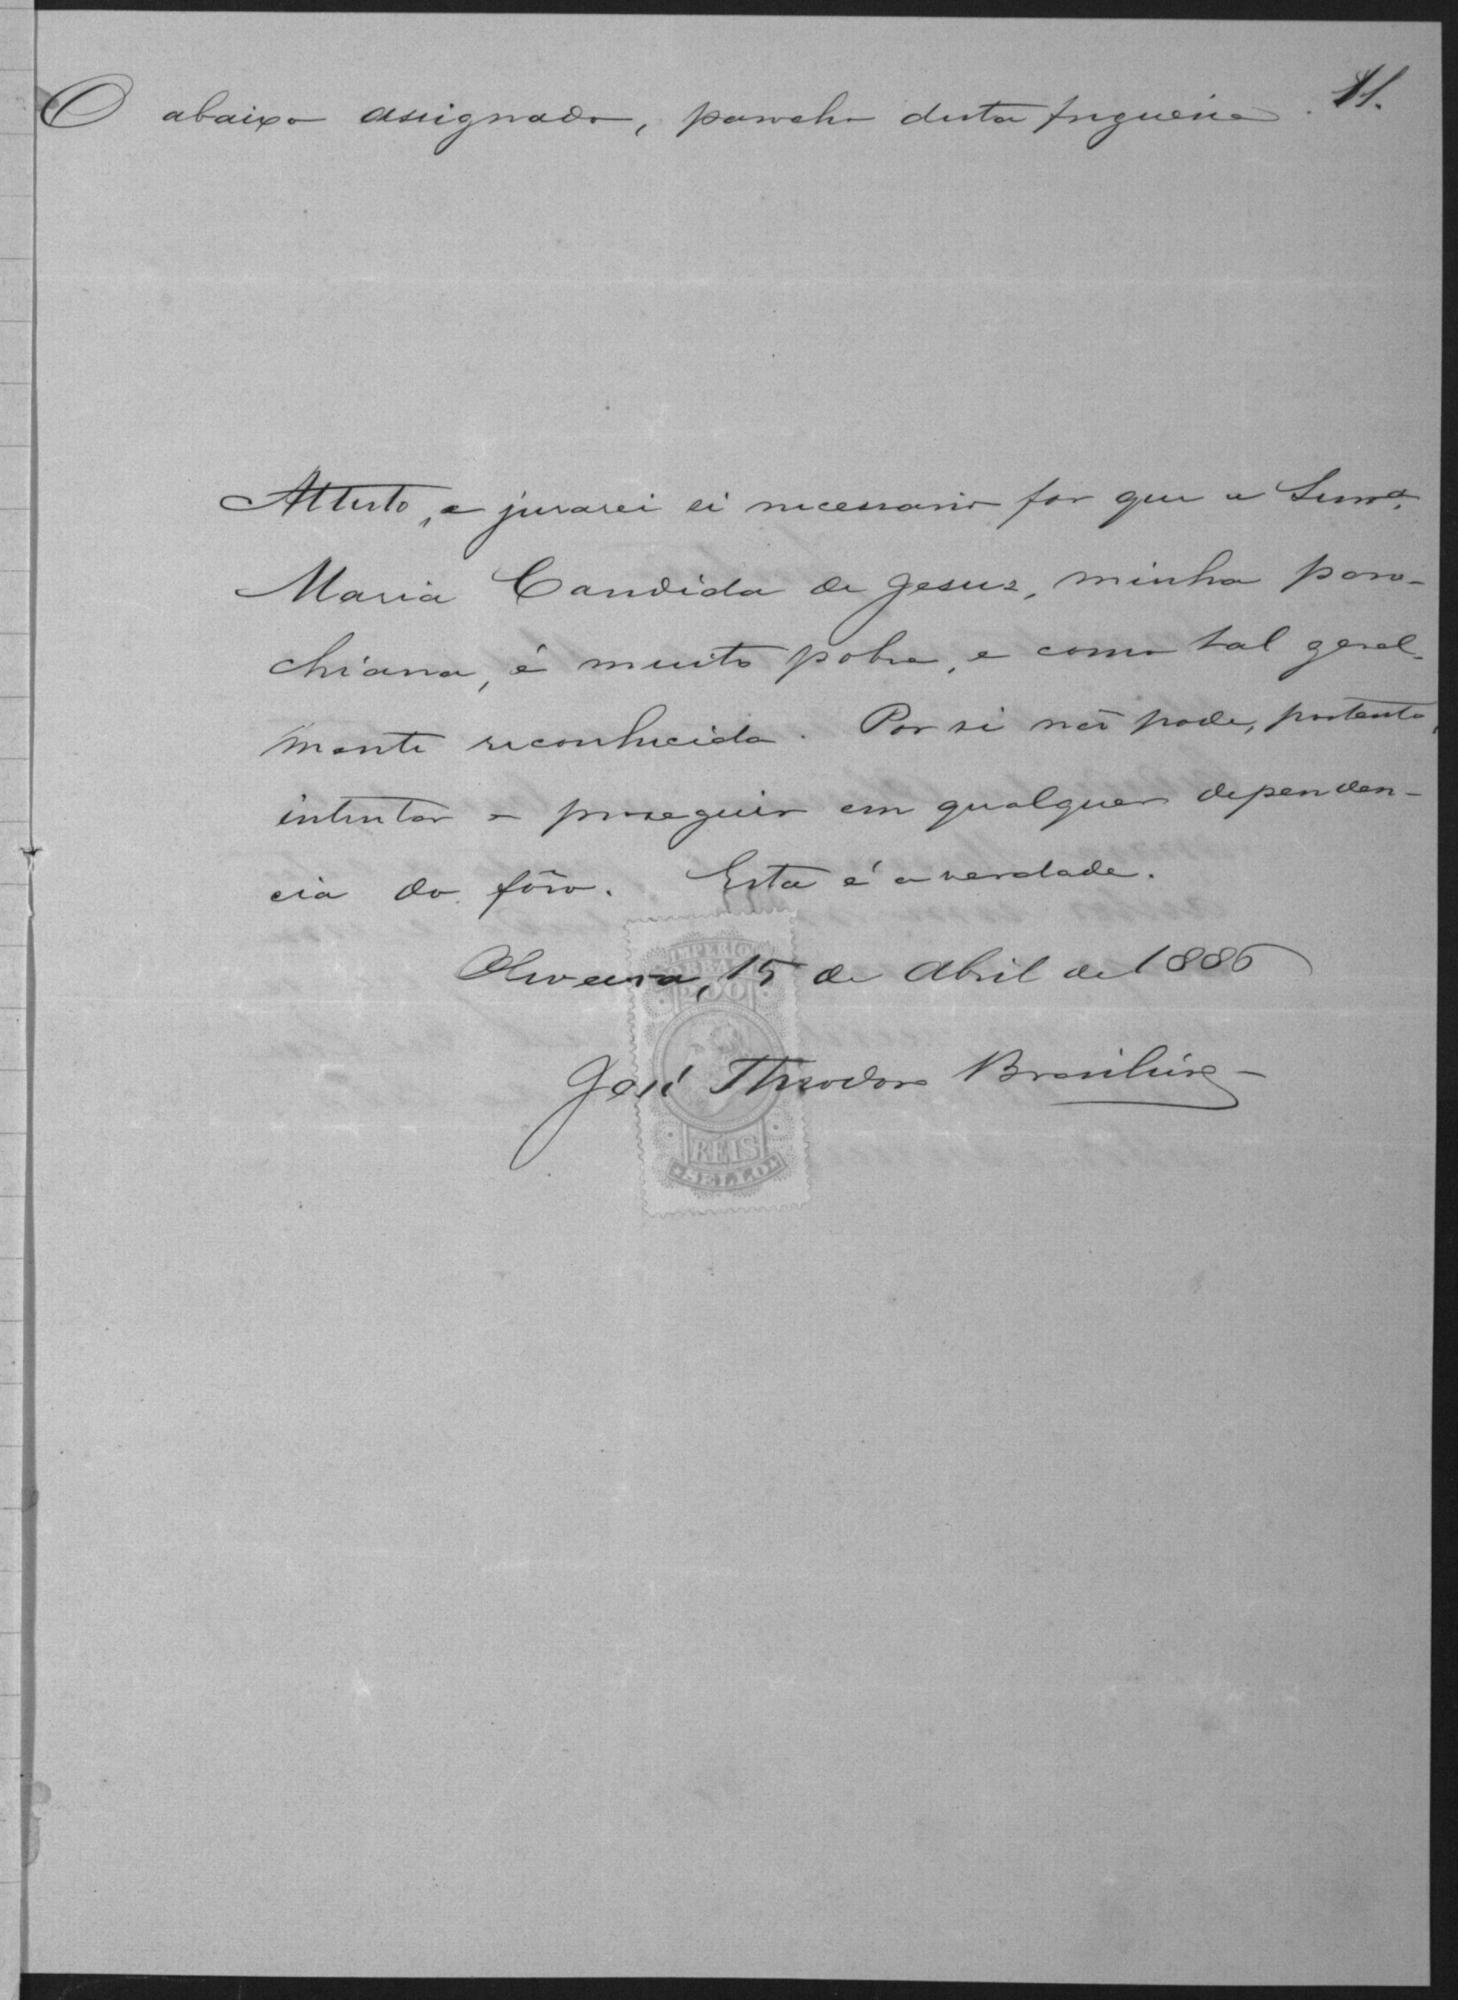 11.
O abaixo assignado, parocho desta freguesia.
Attesto, e jurarei si necessario for que a Senra.
Maria Candida de Jesus, minha paro-
chiana, é muito pobre, e como tal geral-
mente reconhecida. Por si não pode, portanto,
intentar e proseguir em qualquer dependen-
cia do fôro. Esta é a verdade.
Oliveira, 15 de Abril de 1886
José Theodoro Brasileiro
IMPERIO
200
REIS
SELLO